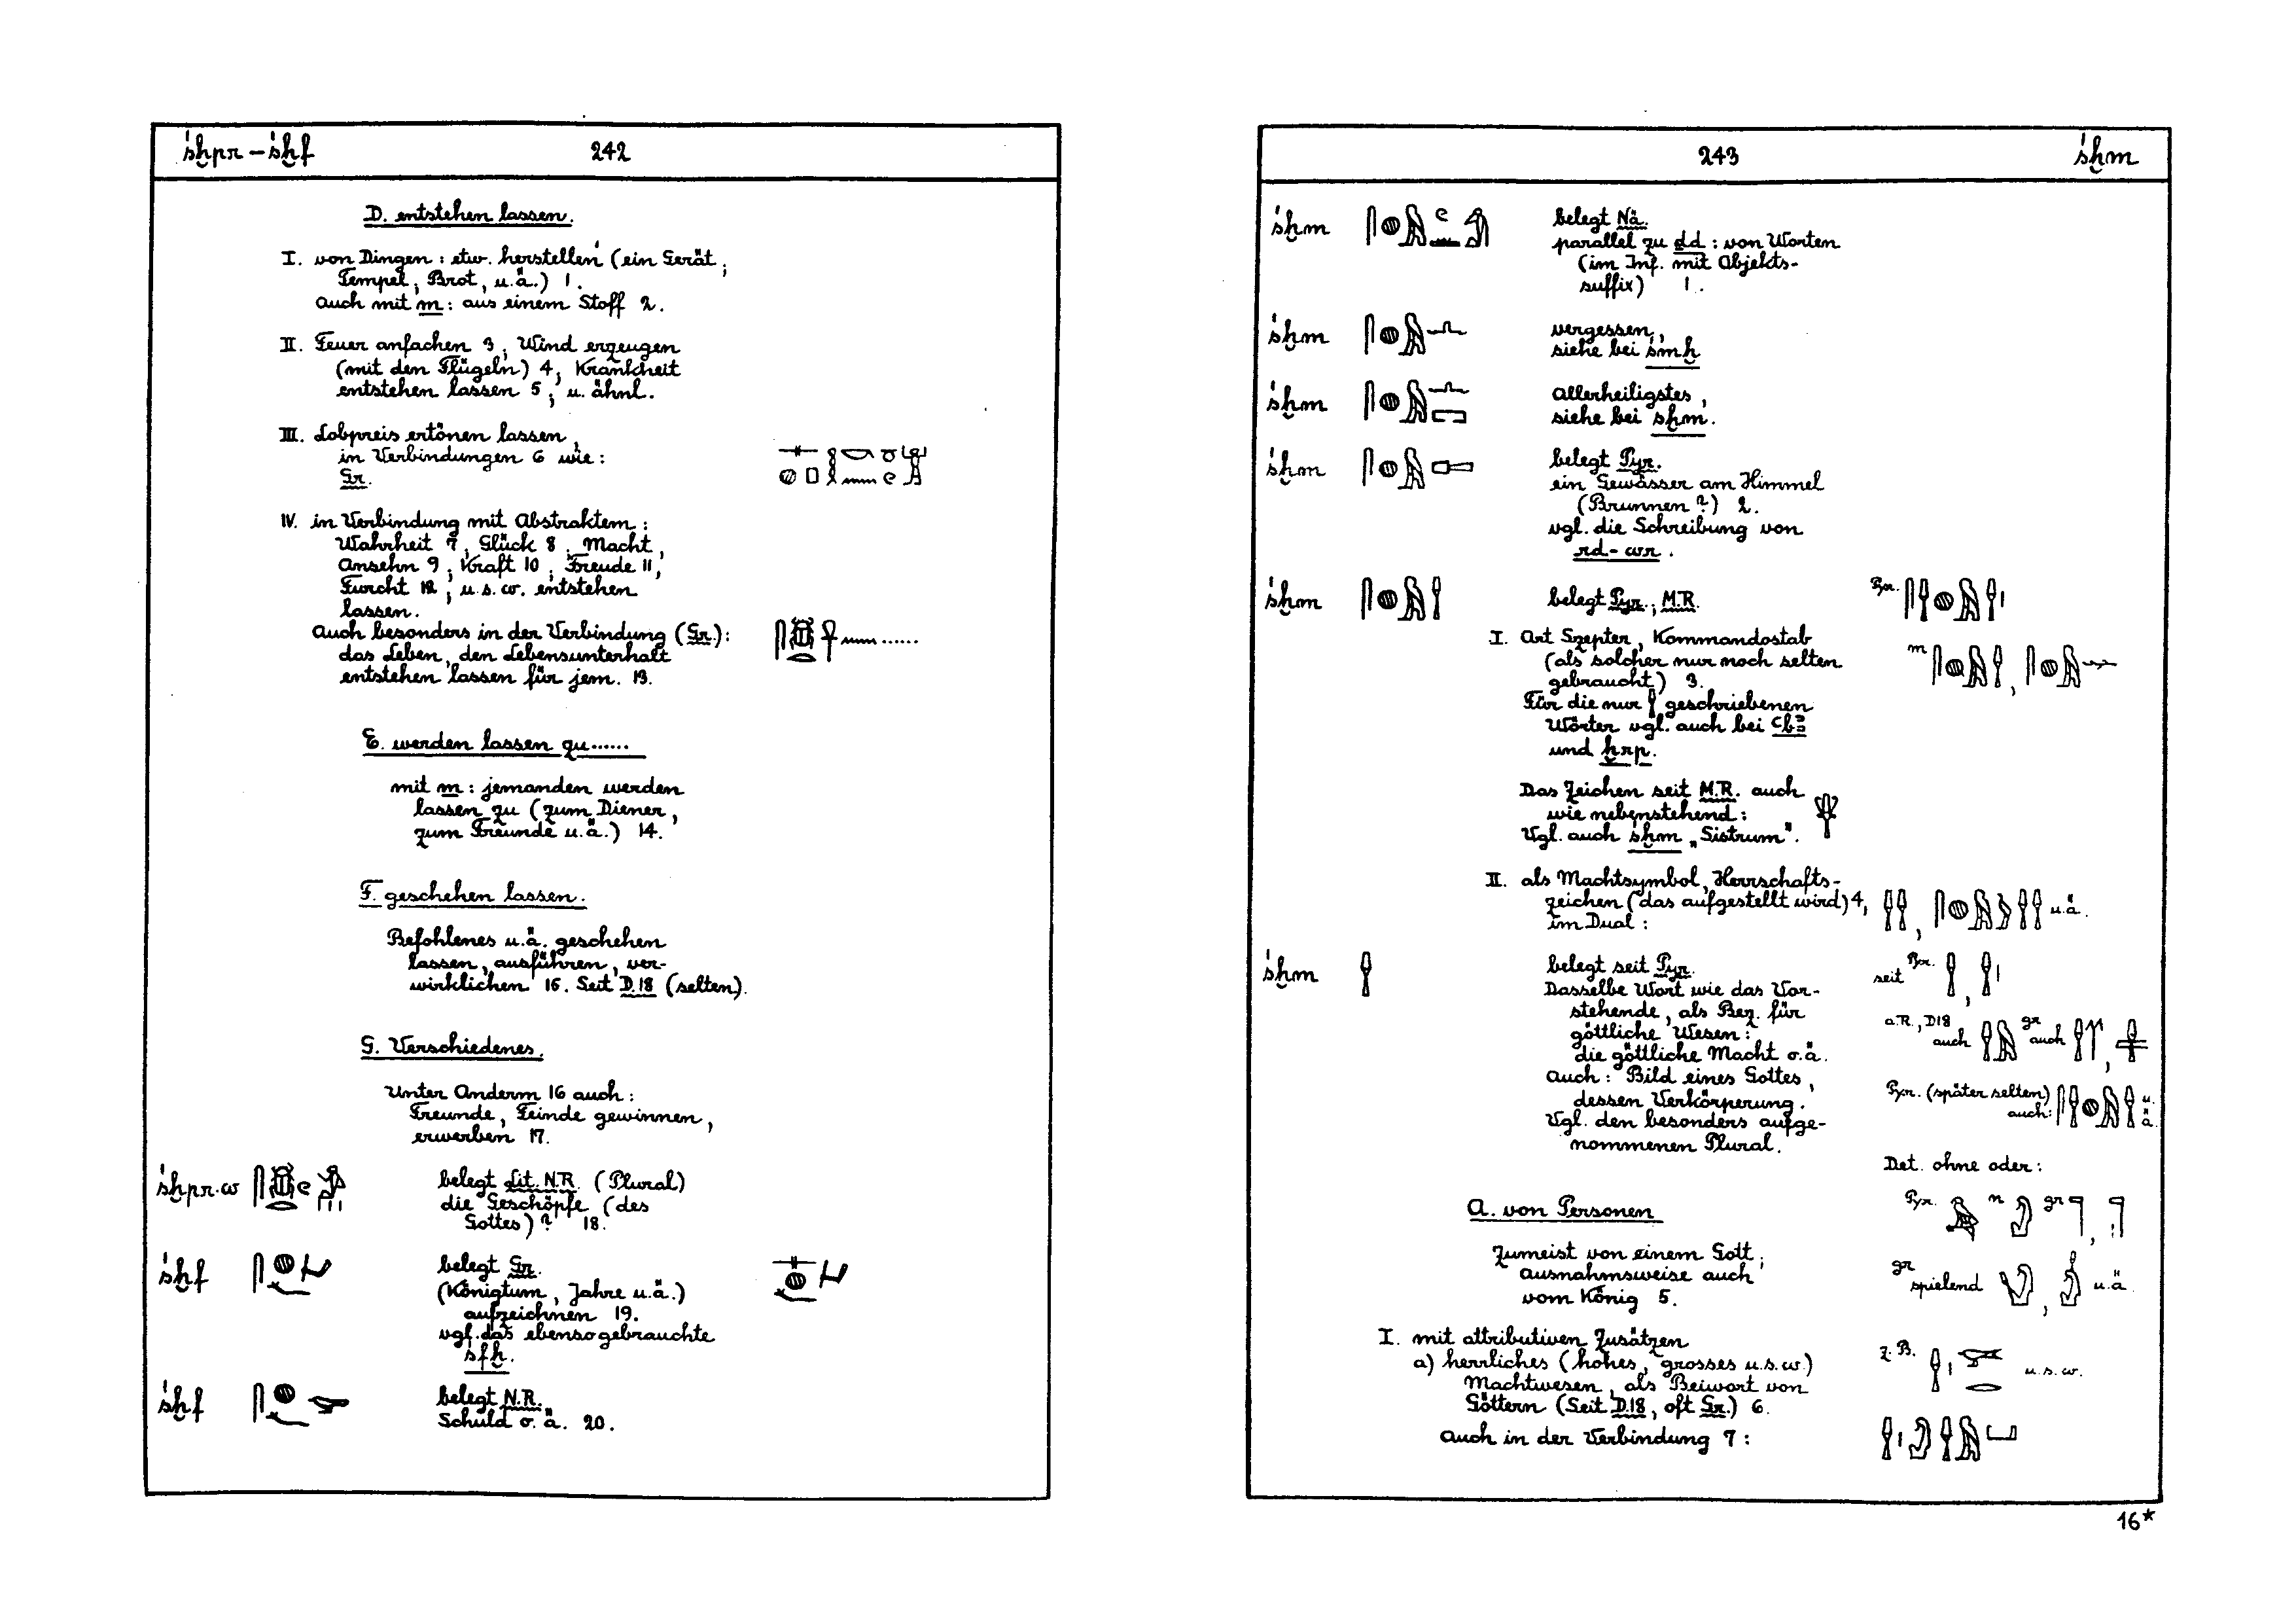 śḫpr – śḫf 242
D. entstehen lassen.
I. von Dingen : etw. herstellen (ein Gerät,
Tempel, Brot, u.ä.) 1.
auch mit m : aus einem Stoff 2.
II. Feuer anfachen 3, Wind erzeugen
(mit den Flügeln) 4, Krankheit
entstehen lassen 5, u. ähnl.
III. Lobpreis ertönen lassen,
in Verbindungen 6 wie :
Gr.
IV. in Verbindung mit Abstraktem :
Wahrheit 7, Glück 8, Macht,
Ansehn 9, Kraft 10, Freude 11,
Furcht 12, u.s.w. entstehen
lassen.
Auch besonders in der Verbindung (Gr.) :
das Leben, den Lebensunterhalt
entstehen lassen für jem. 13.
E. werden lassen zu ......
mit m : jemanden werden
lassen zu (zum Diener,
zum Freunde u.ä.) 14.
F. geschehen lassen.
Befohlenes u.ä. geschehen
lassen, ausführen, ver-
wirklichen 15. Seit D.18 (selten).
G. Verschiedenes.
Unter Anderm 16 auch :
Freunde, Feinde gewinnen,
erwerben 17.
śḫpr.w belegt Lit. N.R. (Plural)
die Geschöpfe (des
Gottes) ? 18.
śḫf belegt Gr.
(Königtum, Jahre u.ä.)
aufzeichnen 19.
vgl. das ebenso gebrauchte
śfḫ.
śḫf belegt N.R.
Schuld o.ä. 20.
243 śḫm
śḫm belegt Nä.
parallel zu dd : von Worten
(im Inf. mit Objekts-
suffix) 1.
śḫm vergessen,
siehe bei śmḫ
śḫm Allerheiligstes,
siehe bei sḫm.
śḫm belegt Pyr.
ein Gewässer am Himmel
(Brunnen ?) 2.
vgl. die Schreibung von
rd-wr.
śḫm belegt Pyr.; M.R. Pyr.
I. Art Szepter, Kommandostab
(als solcher nur noch selten
gebraucht) 3.
Für die nur geschriebenen
Wörter vgl. auch bei ꜥbꜣ
und ḫrp.
Das Zeichen seit M.R. auch
wie nebenstehend :
Vgl. auch śḫm „Sistrum".
II. als Machtsymbol, Herrschafts-
zeichen (das aufgestellt wird) 4,
im Dual : u.ä.
śḫm belegt seit Pyr. seit Pyr.
Dasselbe Wort wie das Vor-
stehende, als Bez. für
göttliche Wesen : a.R., D18 auch gr auch
die göttliche Macht o.ä.
Auch : Bild eines Gottes,
dessen Verkörperung. Pyr. (später selten) auch : u.ä.
Vgl. den besonders aufge-
nommenen Plural.
Det. ohne oder :
A. von Personen Pyr. n gr
Zumeist von einem Gott,
ausnahmsweise auch gr spielend u.ä.
vom König 5.
I. mit attributiven Zusätzen
a) herrliches (hohes, grosses u.s.w.) z.B. u.s.w.
Machtwesen, als Beiwort von
Göttern (Seit D.18, oft Gr.) 6.
Auch in der Verbindung 7 :
16*